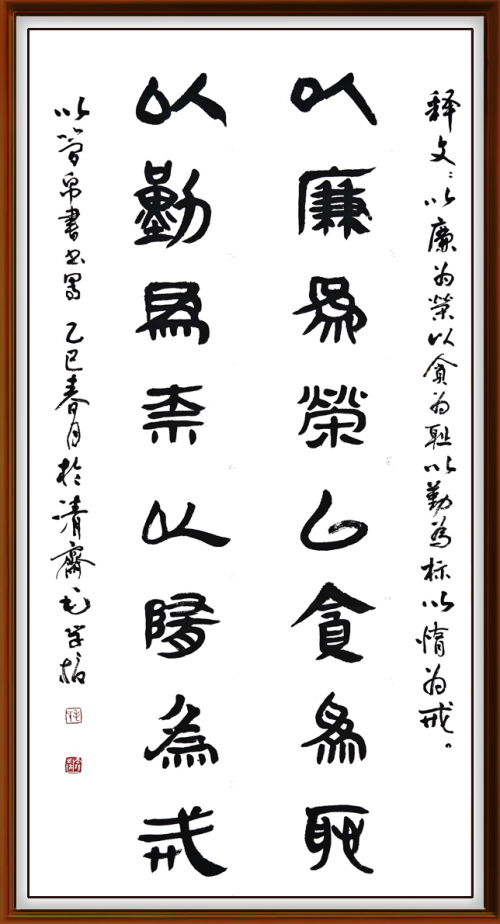 释文：以廉为榮以贪为耻以勤為标以惰为戒。
以廉為榮以貪為恥
以勤為標以惰為戒
以简帛書 乙巳春月於清齋